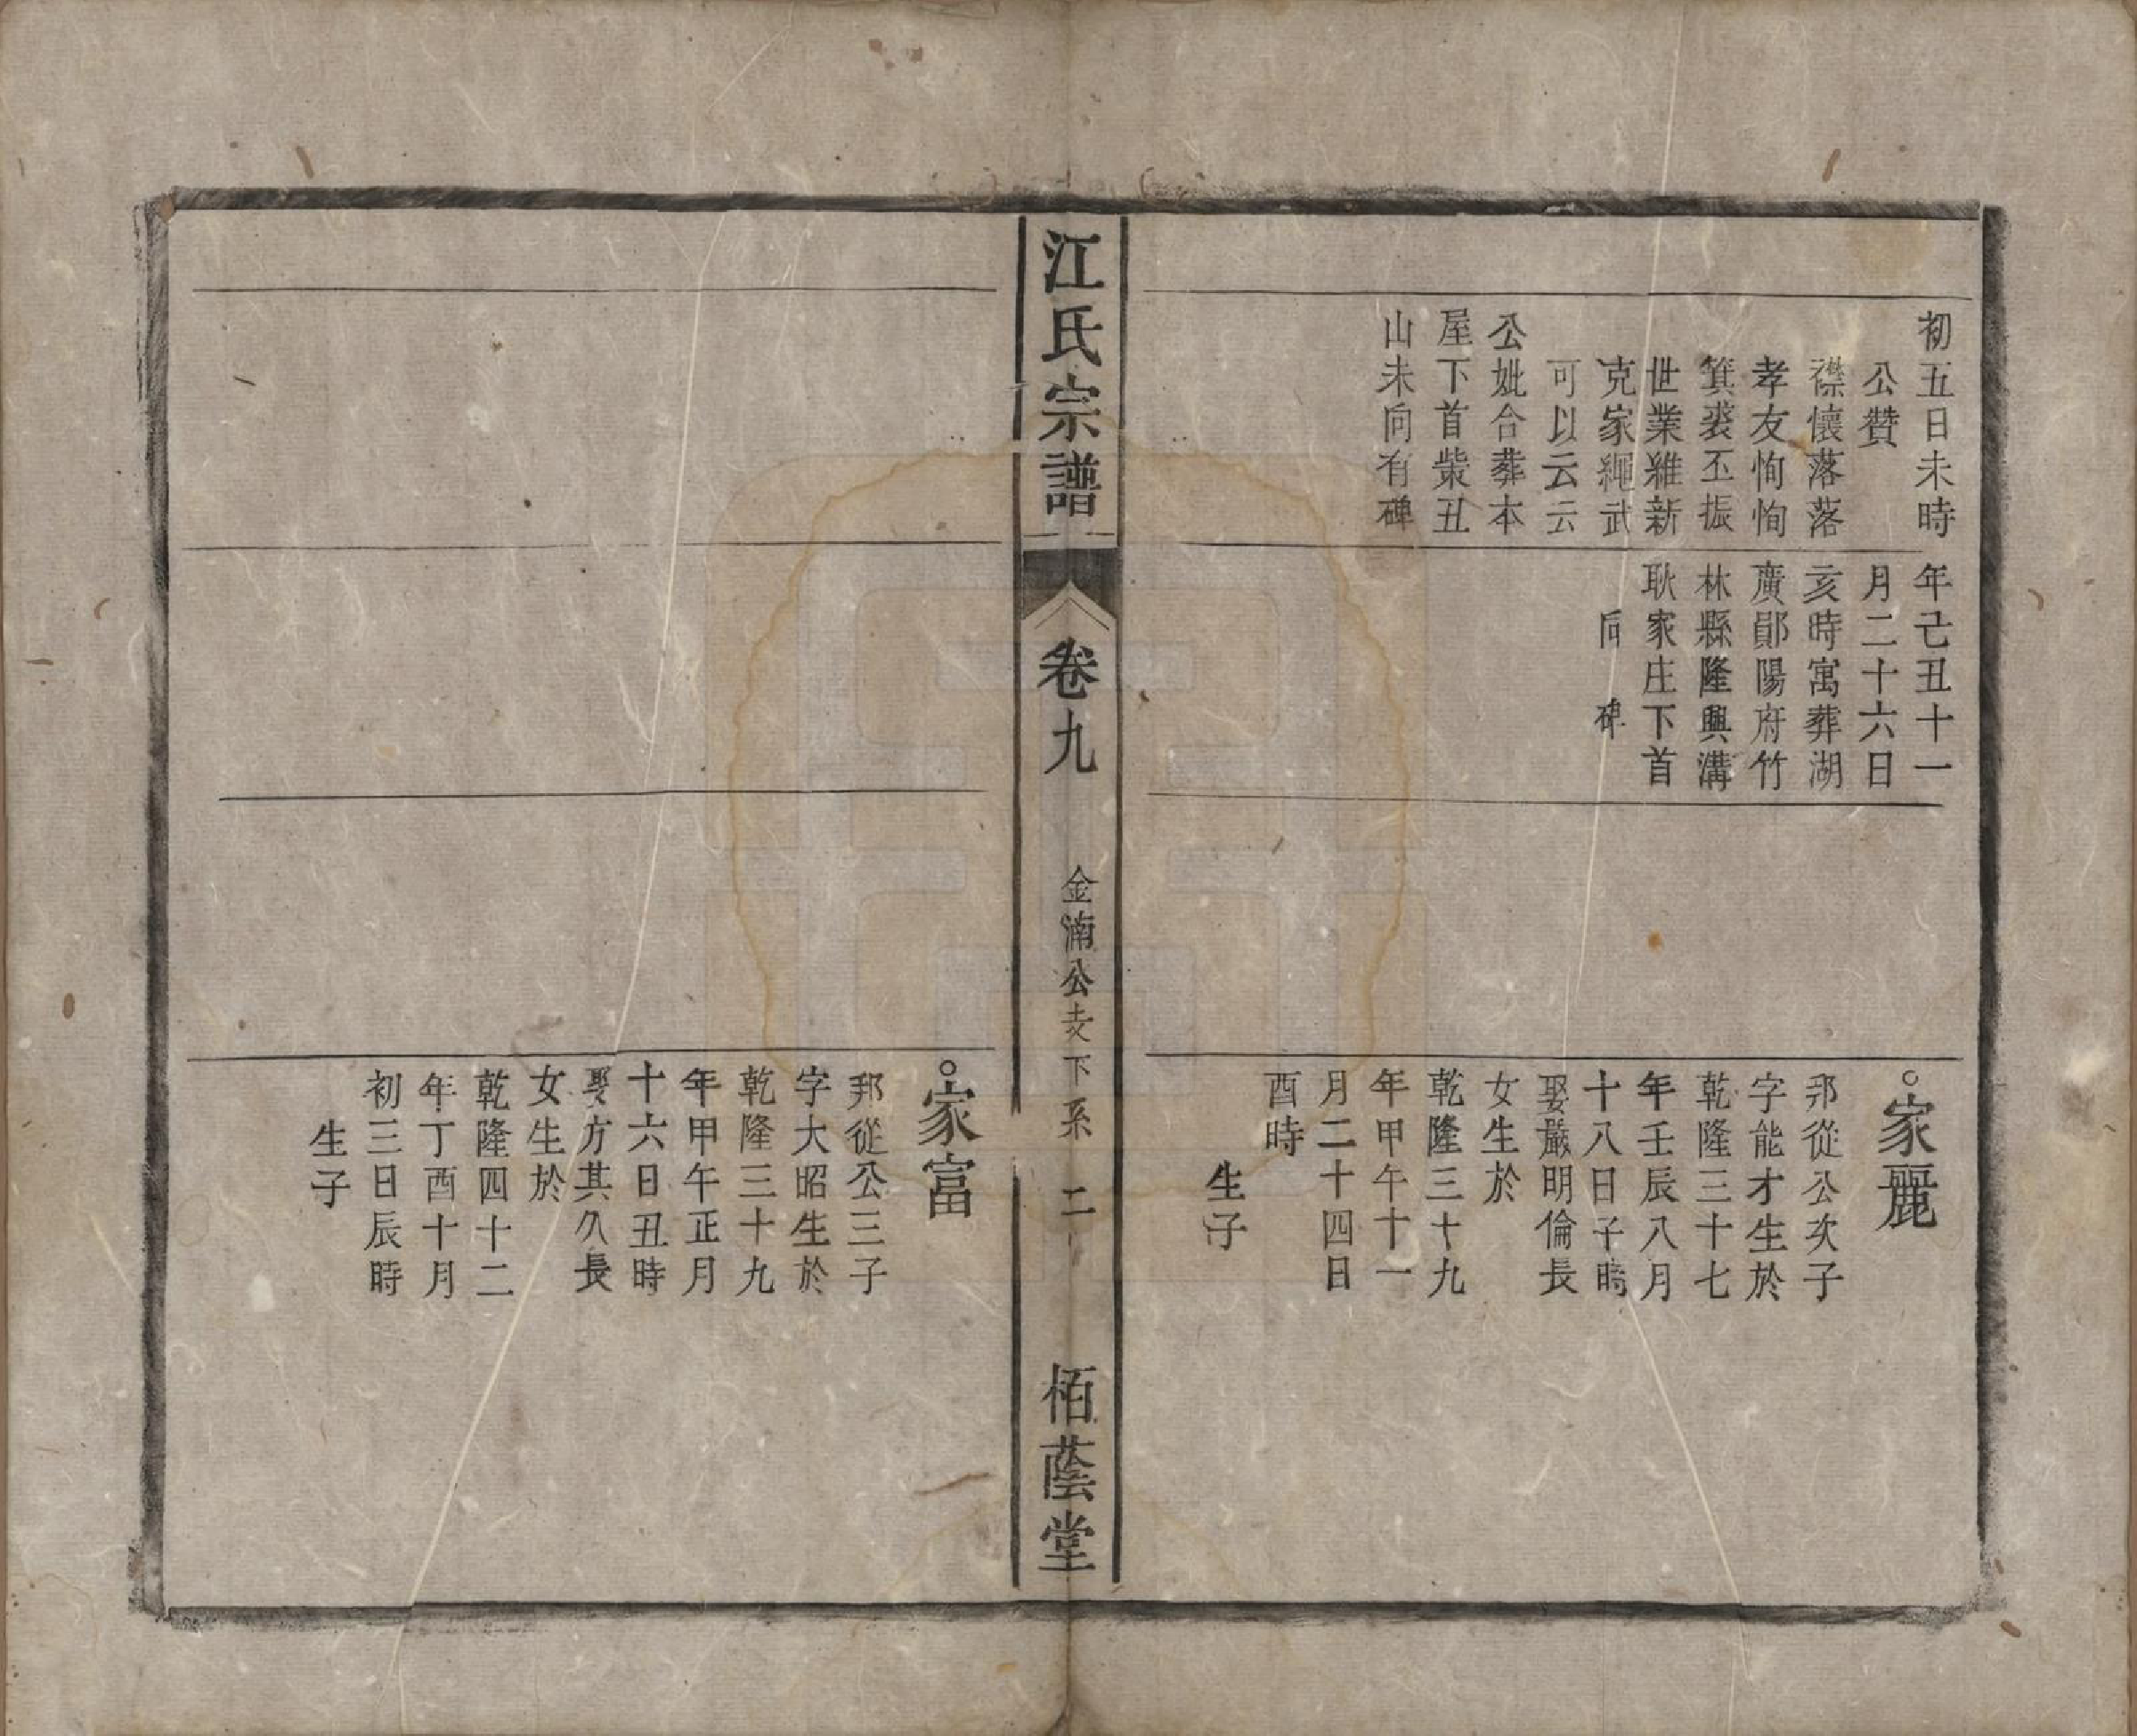 初五日未時
公贊
襟懷落落
孝友恂恂
箕裘丕振
世業維新
克家繩武
可以云云
公妣合葬本
屋下首柴丑
山未向有碑
年己丑十一
月二十六日
亥時寓葬湖
廣鄖陽府竹
林縣隆興溝
耿家庄下首
向 碑
○家麗
邦從公次子
字能才生於
乾隆三十七
年壬辰八月
十八日子時
娶嚴明倫長
女生於
乾隆三十九
年甲午十一
月二十四日
酉時
生子
江氏宗譜
卷九
金湳公支下系
二
栢蔭堂
○家富
邦從公三子
字大昭生於
乾隆三十九
年甲午正月
十六日丑時
娶方其久長
女生於
乾隆四十二
年丁酉十月
初三日辰時
生子